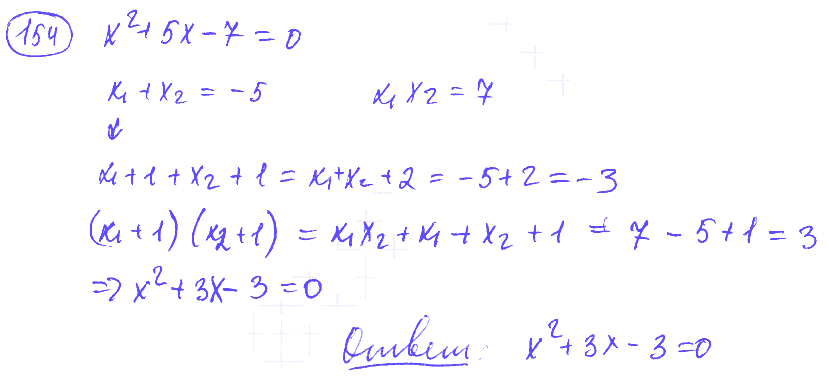 154 x² + 5x - 7 = 0
x₁ + x₂ = -5 x₁ x₂ = 7
↓
x₁ + 1 + x₂ + 1 = x₁ + x₂ + 2 = -5 + 2 = -3
(x₁ + 1) (x₂ + 1) = x₁ x₂ + x₁ + x₂ + 1 = 7 - 5 + 1 = 3
=> x² + 3x - 3 = 0
Ответ: x² + 3x - 3 = 0